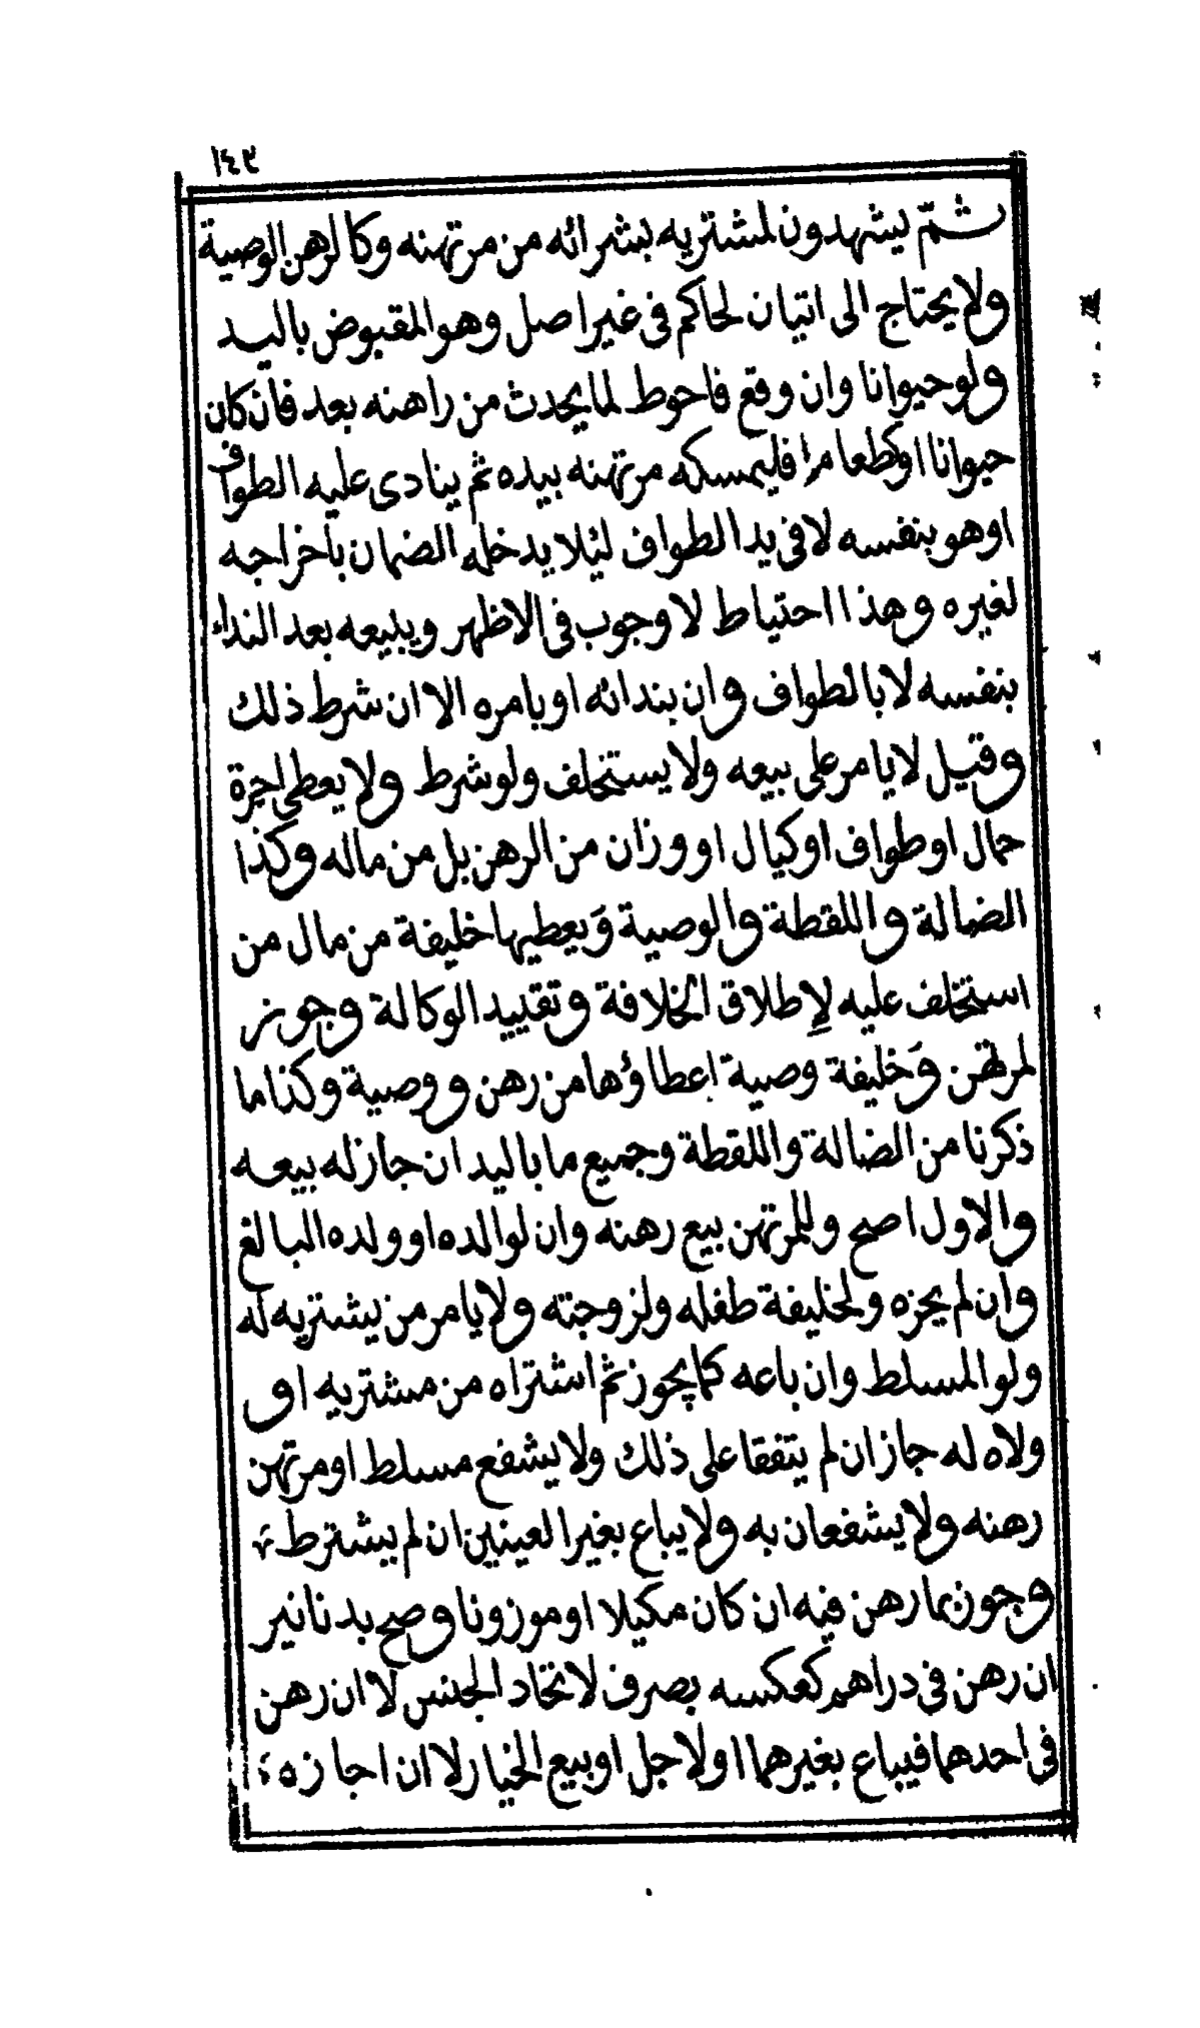 ١٤٢
ثمّ يشهدون لمشتريه بشرائه من مرتهنه وكالرهن الوصية
ولا يحتاج الى اتيان لحاكم في غير اصل وهو المقبوض باليد
ولو حيوانا وان وقع فاحوط لما يحدث من راهنه بعد فان كان
حيوانا او كطعام فليمسكه مرتهنه بيده ثم ينادى عليه الطواف
او هو بنفسه لا في يد الطواف ليلا يدخله الضمان باخراجه
لغيره وهذا احتياط لا وجوب في الاظهر ويبيعه بعد النداء
بنفسه لا بالطواف وان بندائه او يامره الا ان شرط ذلك
وقيل لا يامر على بيعه ولا يستخلف ولو شرط ولا يعطى اجرة
حمال او طواف او كيال او وزان من الرهن بل من ماله وكذا
الضالة واللقطة والوصية وَيعطيها خليفة من مال من
استخلف عليه لإطلاق الخلافة وتقييد الوكالة وجوز
لمرتهن وَخليفة وصية اعطاؤها من رهن ووصية وكذا ما
ذكرنا من الضالة واللقطة وجميع ما باليد ان جاز له بيعه
والاول اصح وللمرتهن بيع رهنه وان لوالده او ولده البالغ
وان لم يحزه ولخليفة طفله ولزوجته ولا يامر من يشتريه له
ولو المسلط وان باعه كما يجوز ثم اشتراه من مشتريه او
ولاه له جاز ان لم يتفقا على ذلك ولا يشفع مسلط او مرتهن
رهنه ولا يشفعان به ولا يباع بغير العينين ان لم يشترط
وجوز بما رهن فيه ان كان مكيلا او موزونا وصح بدنانير
ان رهن في دراهم كعكسه بصرف لاتخاد الجنس لا ان رهن
في احدهما فيباع بغيرهما او لاجل او بيع الخيار لا ان اجازه